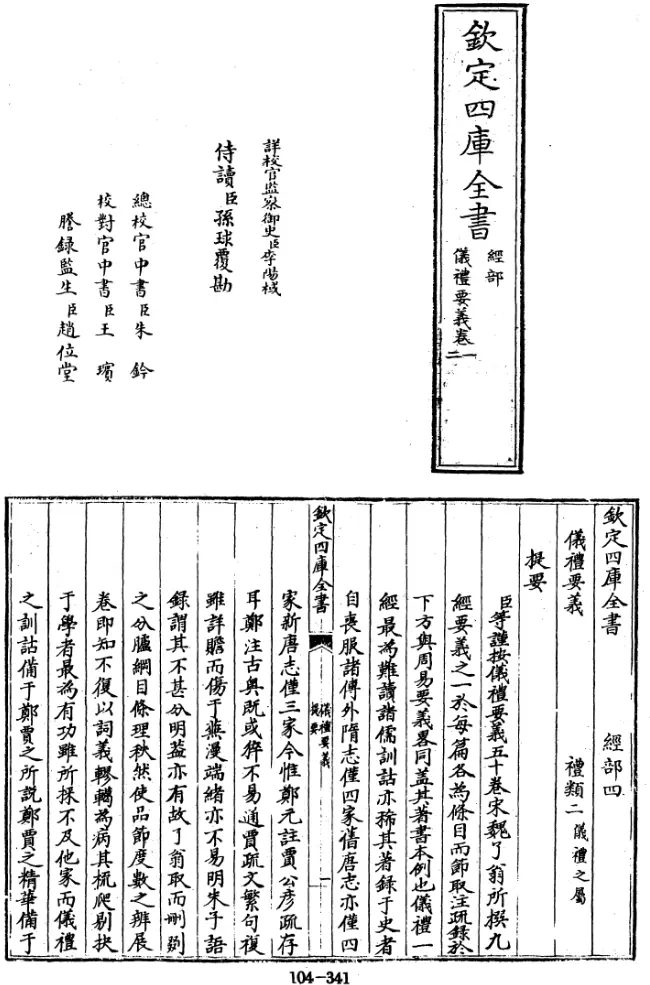 欽定四庫全書
經部
儀禮要義卷一
二
詳校官監察御史臣李陽棫
侍讀臣孫球覆勘
總校官中書臣朱鈐
校對官中書臣王瓆
謄錄監生臣趙位堂
欽定四庫全書 經部四
儀禮要義 禮類二儀禮之屬
提要
臣等謹按儀禮要義五十卷宋魏了翁所撰九
經要義之一於每篇各為條目而節取注疏錄於
下方與周易要義畧同盖其著書本例也儀禮一
經最為難讀諸儒訓詁亦稀其著錄于史者
自喪服諸傳外隋志僅四家舊唐志亦僅四
欽定四庫全書 儀禮要義 提要 一
家新唐志僅三家今惟鄭元註賈公彥疏存
耳鄭注古奧既或猝不易通賈疏文繁句複
雖詳贍而傷于蕪漫端緒亦不易明朱子語
錄謂其不甚分明葢亦有故了翁取而刪剟
之分臚綱目條理秩然使品節度數之辨展
卷即知不復以詞義轇轕為病其梳爬剔抉
于學者最為有功雖所採不及他家而儀禮
之訓詁備于鄭賈之所說鄭賈之精華備于
104-341